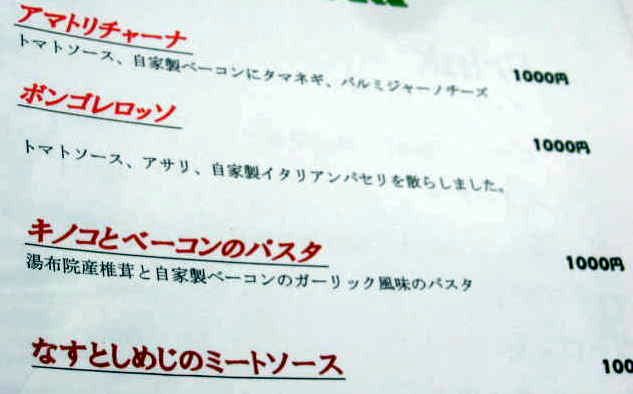 アマトリチャーナ
トマトソース、自家製ベーコンにタマネギ、パルミジャーノチーズ 1000円
ボンゴレロッソ
1000円
トマトソース、アサリ、自家製イタリアンパセリを散らしました。
キノコとベーコンのパスタ
1000円
湯布院産椎茸と自家製ベーコンのガーリック風味のパスタ
なすとしめじのミートソース
100